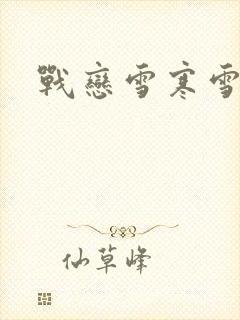 戰戀雪寒雪
仙草峰